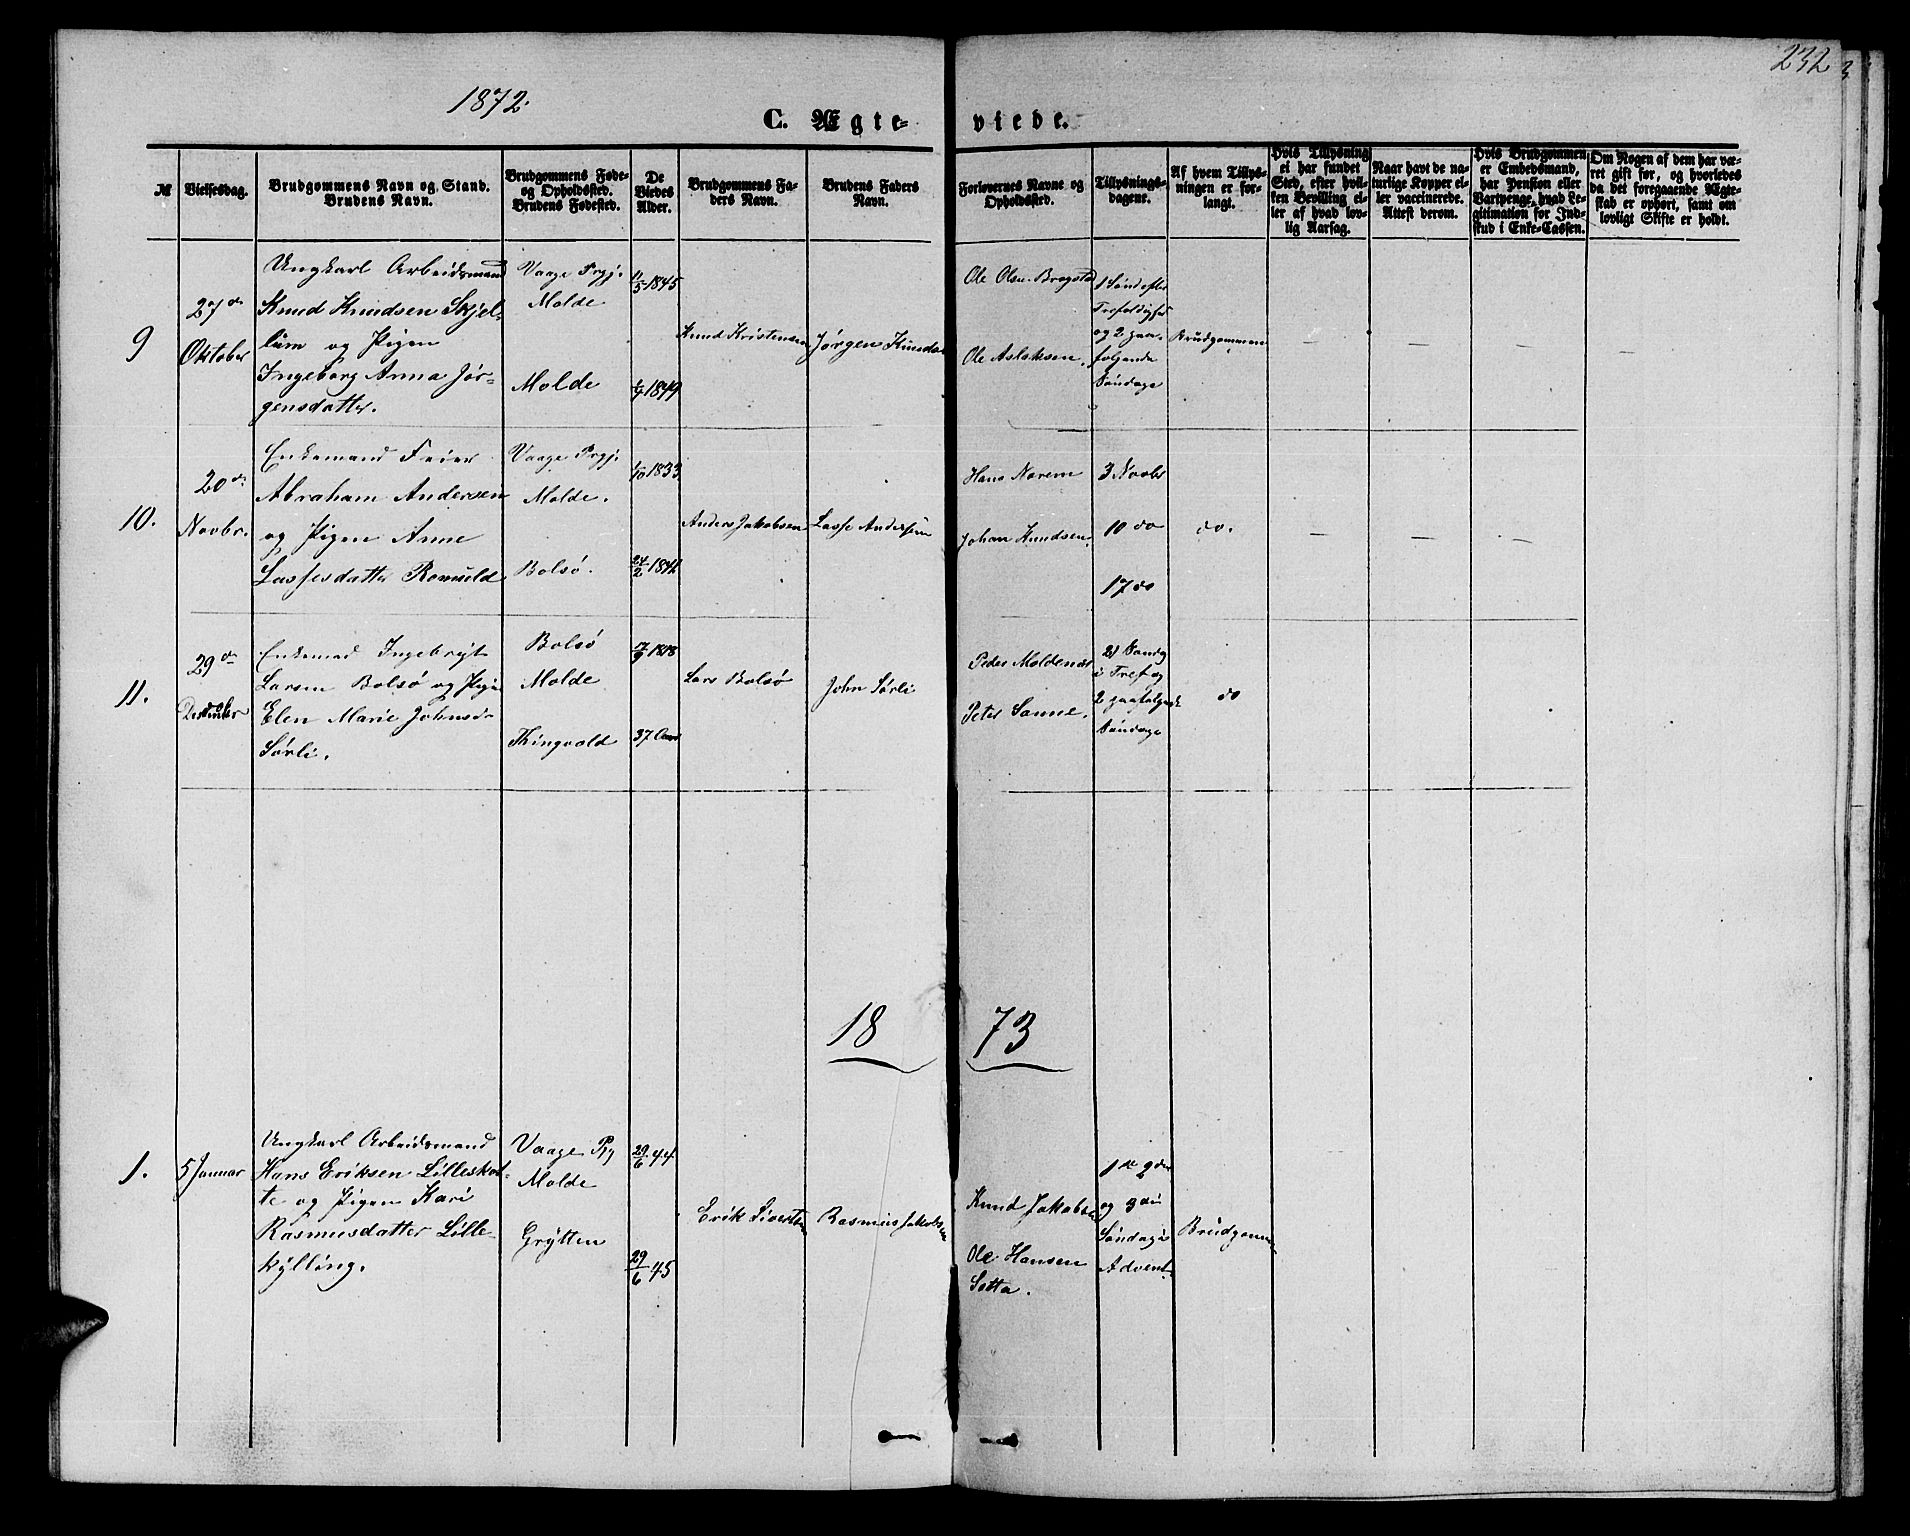 232
1872.
C. Ægte-viede.
№
Vielsesdag.
Brudgommens Navn og Stand.
Brudens Navn.
Brudgommens Føde-
og Opholdssted.
Brudens Fødested.
De
Viedes
Alder.
Brudgommens Fa-
ders Navn.
Brudens Faders
Navn.
Forlovernes Navne og
Opholdssted.
Tillysnings-
dagene.
Af hvem Tillys-
ningen er for-
langt.
Hvis Tillysning
ei har fundet
Sted, efter hvil-
ken Bevilling el-
ler af hvad lov-
lig Aarsag.
Naar havt de na-
turlige Kopper el-
ler vaccinerede.
Attest derom.
Hvis Brudgommen
er Embedsmand,
har Pension eller
Vartpenge, hvad Le-
gitimation for Ind-
skud i Enke-Cassen.
Om Nogen af dem har væ-
ret gift før, og hvorledes
da det foregaaende Ægte-
skab er ophørt, samt om
lovligt Skifte er holdt.
9
27de
Oktober
Ungkarl Arbeidsmand
Knud Knudsen Skjel-
lum og Pigen
Ingeborg Anna Jør-
gensdatter.
Vaage Prgj.
Molde
Molde
11/5 1845
1849
Knud Kristensen
Jørgen Knudsen
Ole Olsen Brogstad
Ole Aslaksen.
1 Sønd efter
Trefoldighed
og 2 paa-
følgende
Søndage
Brudgommen
— — — —
10.
20de
Novbr.
Enkemand Feier
Abraham Andersen
og Pigen Anne
Lassesdatter
Vaage Prgj.
Molde.
Bolsø.
1/10 1833
24/2
Anders Jakobsen
Lasse Andersen
Hans Norem
Johan Knudsen.
3 Novbr
10 do
17 do
do.
— — —
11.
29de
Desember
Enkemand Ingebrigt
Larsen Bolsø og Pige
Elen Marie Johnsd.
Sørli.
Bolsø
Molde
Thingvold
1818
37 Aar
Lars Bolsø
John Sørli
Peder Moldenæs
Peter Sanne.
21 Søndg
i Tref og
2 paafølgende
Søndage
do
18 73
1.
5 Januar
Ungkarl Arbeidsmand
Hans Eriksen Lilleskot-
te og Pigen Kari
Rasmusdatter Lille-
kylling.
Vaage Pg
Molde
Grytten
29/6 44
29/6 45
Erik Sivertsen
Rasmus Jakobsen
Knud Jakobsen
Ole Hansen
Sotta.
1ste 2den
og 3die
Søndag i
Advent
Brudgommen